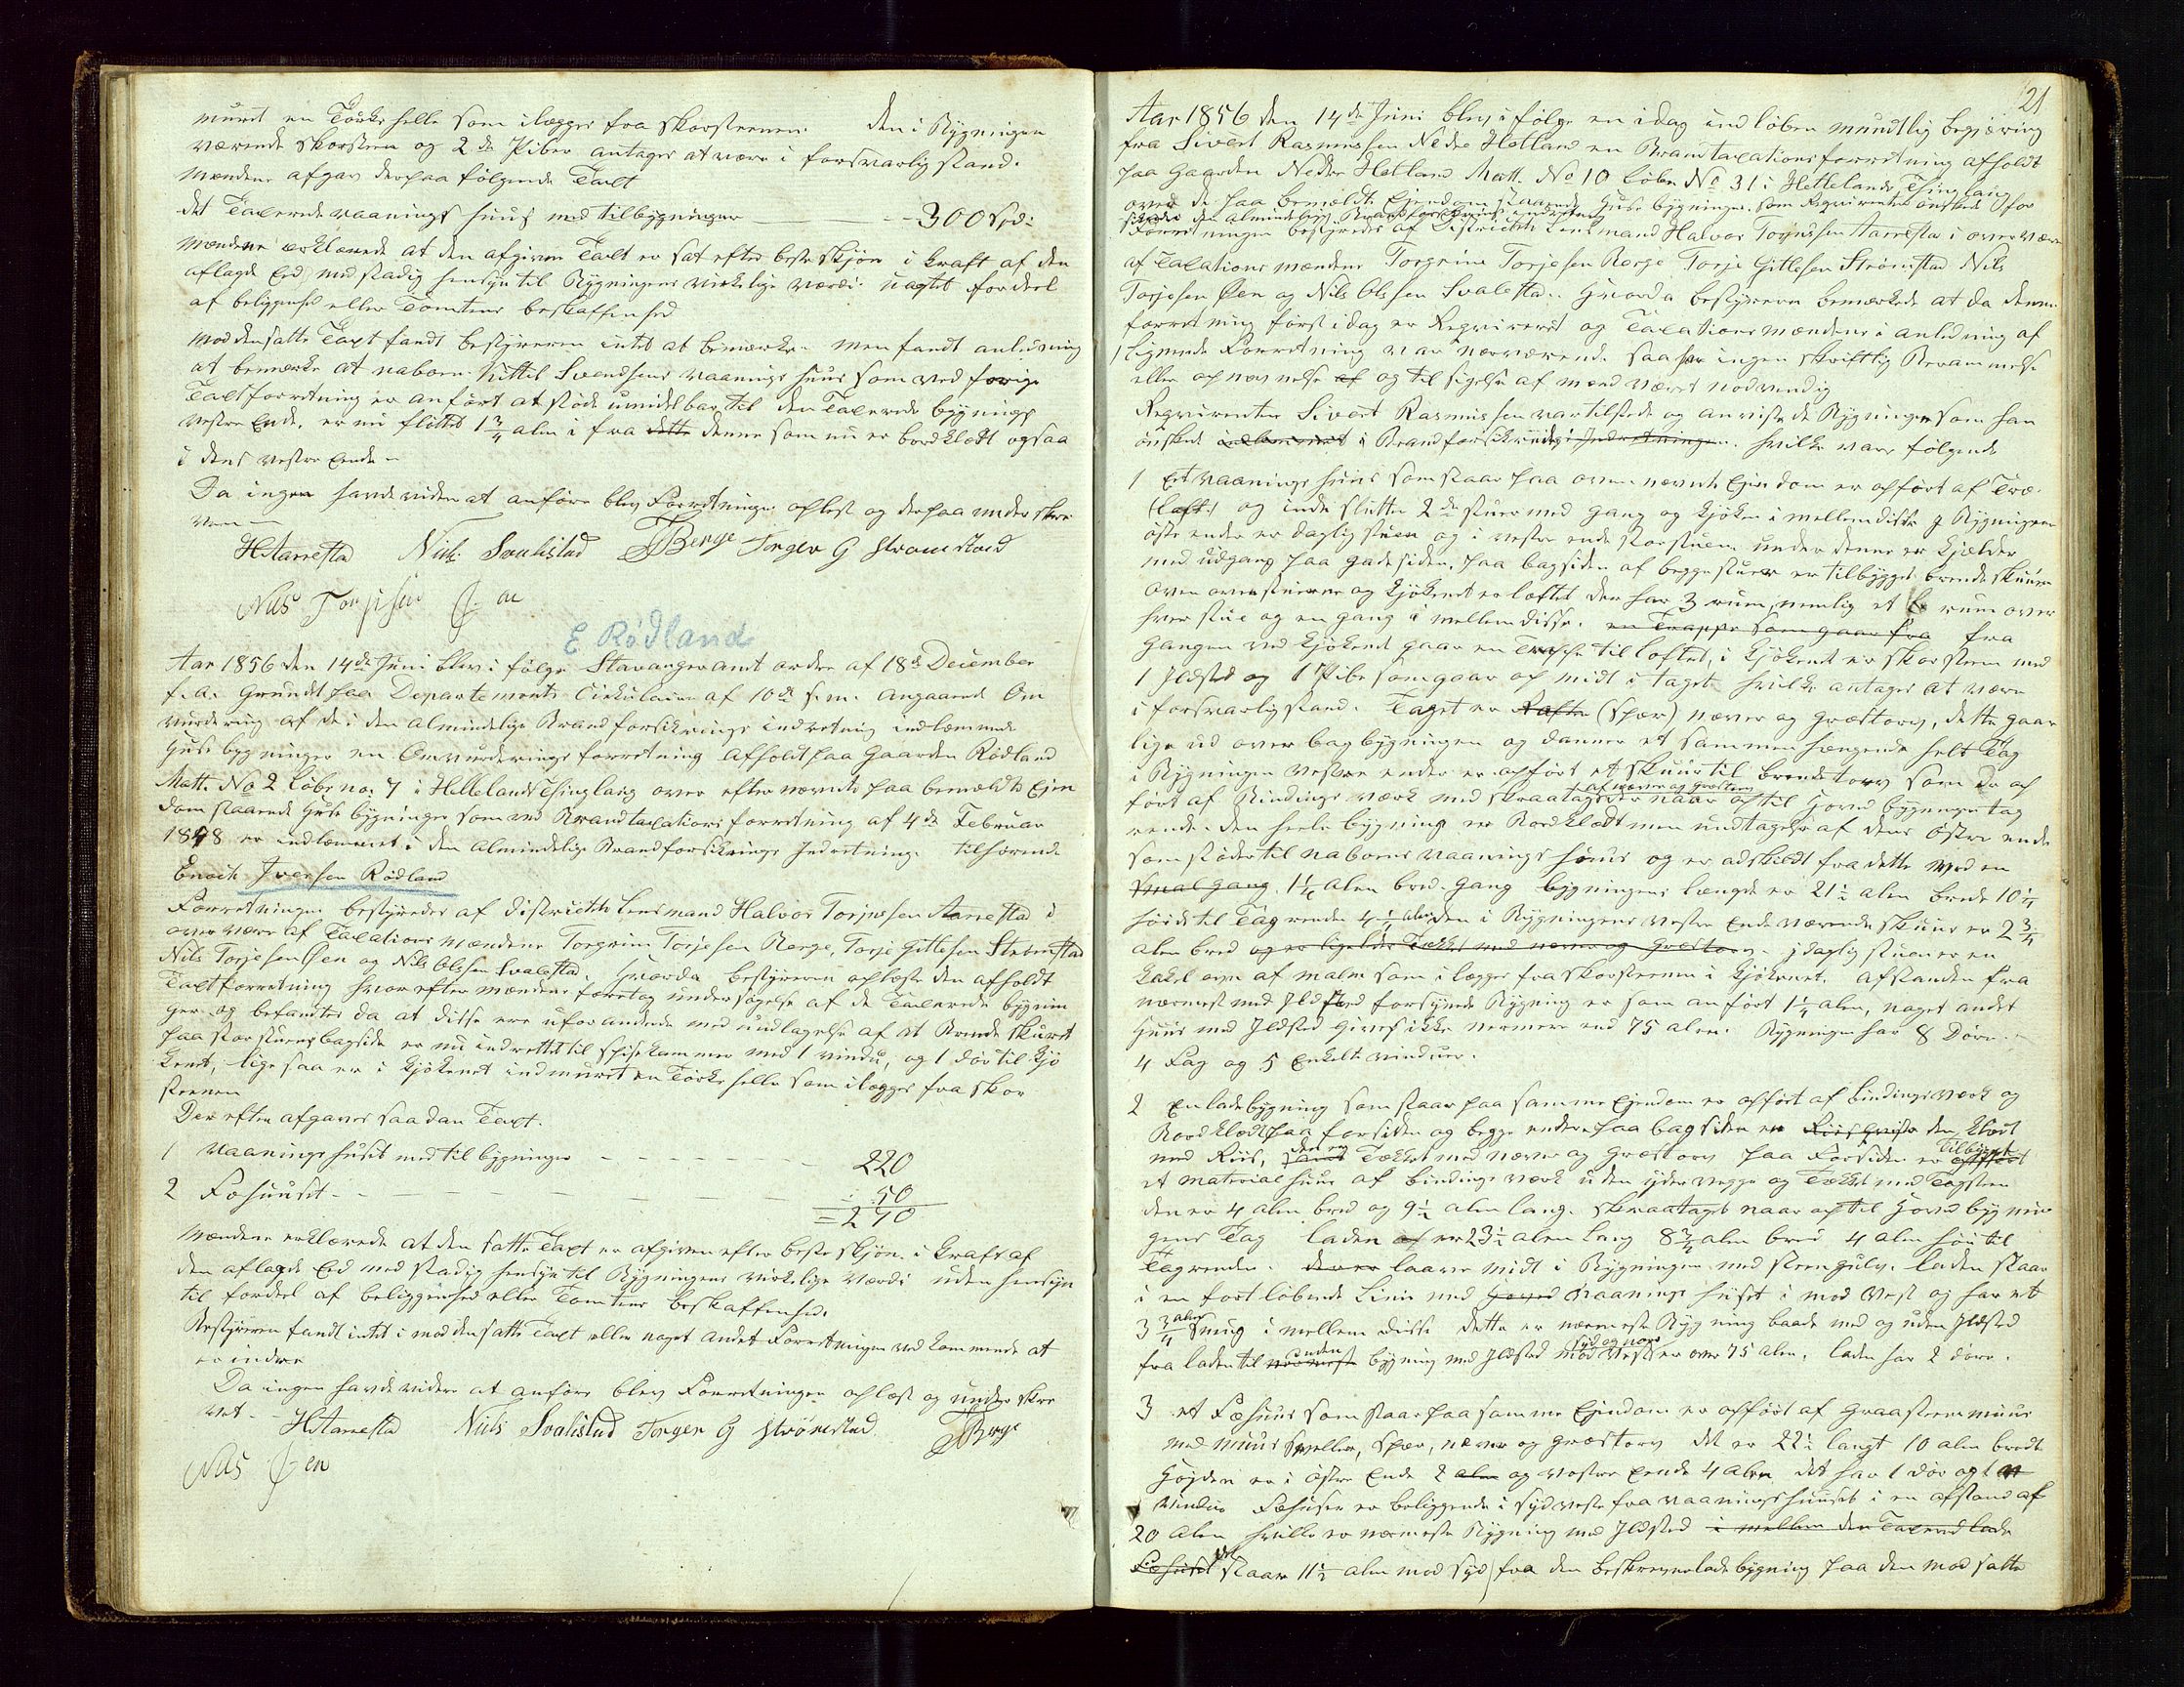 muret en Törkehelle som ilægges fra skorsteenen. Den i Bygningen
værende skorsteen og 2de Piber antages at være i forsvarlig stand.
Mændene afgav derpaa følgende Taxt
det Taxerede vaaningshuus med tilbygninger — 300 Spd:
Mændene erklærede at den afgivne Taxt er sat efter beste skjøn i kraft af den
aflagde Eed, med stadig hensyn til Bygningens virkelige værdi uagtet fordeel
af beliggenhed eller Tomtens beskaffenhed
Mod den satte Taxt fandt bestyreren intet at bemærke. men fandt anledning
at bemærke at naboen Kittel Svendsens vaaningshuus som ved forige
Taxtforretning er anført at støde umidelbar til den Taxerede bygnings
vestre Ende, er nu flöttet 1 3/4 alen i fra dette denne som nu er bordklædt ogsaa
i dens vestre Ende.
Da ingen havde videre at anføre blev Forretningen oplest og derpaa underskre
ven
HAarrestad Niels Svalestad TTBerge Torger G Strømstad
Nils Torjesen Øen
E Rødland
Aar 1856 den 14de Juni blev i følge Stavanger amts ordre af 18de December
f. a. grundet paa Departements Cirkulaire af 10de s. m. angaaende Om
vurdering af de i den almindelige Brandforsikrings indretning indlemmede
Huse bygninger en Omvurderings forretning afholdt paa Gaarden Rødland
Matt. No 2 Løbe no. 7 i Hellelands Thinglaug over efternævnte paa bemældte Ejen
dom staaende Huse bygninger som ved Brandtaxations forretning af 4de Februar
1848 er indlemmet i den almindelige Brandforsikrings Indretning tilhørende
Enoch Iversen Rødland
Forretningen bestyredes af Districtets Lensmand Halvor Torjussen Aarrestad i
overvære af Taxations mændene Torgrim Torjesen Berge, Torje Gitlesen Strømstad
Nils Torjesen Øen og Nils Olssen Svalestad. Hvorda bestyreren oplæste den afholdt
Taxtforretning hvorefter mændene foretog undersøgelse af de Taxerede bygnin
ger og befandtes da at disse ere uforandrede med undtagelse af at Brendeskuret
paa storstuens bagside er nu indrettet til spisekammer med 1 vindu, og 1 dör til kjö
kenet, lige saa er i Kjökenet indmuret en Törkehelle som ilægges fra skor
steenen
Der efter afgaves saadan Taxt.
1 Vaaningshuset med tilbygninger — 220
2 Fæhuuset — 50
= 270
Mændene erklærede at den satte Taxt er afgiven efter beste skjön i Kraft af
den aflagde Eed med stadig hensyn til Bygningens virkelige værdi uden hensyn
til fordeel af beliggenhed eller Tomtens beskaffenhed.
Bestyreren fandt intet i mod den satte Taxt eller noget andet Forretningen vedkommende at
erindre
Da ingen havde videre at anføre blev Forretningen oplæst og underskre
vet. HAarrestad Niels Svalestad Torger G Strömstad TBerge
Nils Øen
21
Aar 1856 den 14de Juni blev i følge en i dag indløben mundtlig begjæring
fra Sivert Rasmussen Nedre Hetland en Brandtaxationsforretning afholdt
paa Gaarden Nedre Hetland Matt. No 10 Løbe No 31 i Hellelands Thinglaug
over de paa bemældte Ejendom staaende Huse bygninger som Reqvirenten ønskede for
sikrede i den almindelige Brandforsikrings indretning
Forretningen bestyredes af Districtets Lensmand Halvor Torjussen Aarrestad i overvære
af Taxations mændene Torgrim Torjesen Berge Torje Gitlesen Strømstad Nils
Torjesen Øen og Nils Olssen Svalestad. Hvorda bestyreren bemærkede at da denne
forretning først i dag er Reqvireret og Taxations mændene i anledning af
lignende Forretning var nærværende saa har ingen skriftlig Berammelse
eller opnævnelse af og tilsigelse af mænd været nødvendig
Reqvirenten Sivert Rasmussen var tilstede og anviste de Bygninger som han
önskede indlemmet i Brandforsikrings Indretningen. hvilke vare følgende
1 Et vaaningshuus som staar paa oven nævnte Ejendom er opført af Træ.
(Laft) og indeslutter 2de stuer med gang og kjöken i mellem disse i Bygningens
østre ende er dagligstuen og i vestre ende storstuen under denne er Kjælder
med udgang paa gadesiden, paa bagsiden af begge stuer er tilbygget brendeskuur
oven over stuerne og kjökenet er loftet der har 3 rum, nemlig et rum over
hver stue og en gang i mellem disse. en Trappe som gaar fra fra
gangen ved kjökenet gaar en Trappe til loftet, i kjökenet er skorsteen med
1 Ildsted og 1 Pibe som gaar op midt i taget hvilke antages at være
i forsvarlig stand. Taget er Rafter (spær) næver og græstorv, dette gaar
lige ud over bagbygningen og danner et sammenhængende helt Tag
i Bygningens vestre ende er opført et skuur til brendetorv som er op
ført af Bindingsværk med skraatag af næver og græstorv der naar op til Hoved bygningens tag
rende. den heele bygning er Bordklædt men undtagelse af dens østre ende
som støder til naboens vaaningshuus og er adskildt fra dette ved en
smal gang, 1 1/4 alen bred gang bygningens længde er 21 1/2 alen brede 10 1/4
høide til Tagrende 4 1/4 alen den i Bygningens vestre Ende værende skuur er 2 3/4
alen bred og er ligeledes Tækket med næver og Græstorv. i dagligstuen er en
kakelovn af malm som ilægges fra skorsteenen i kjökenet. afstanden fra
nærmest med Ildsted forsynede Bygning er som anført 1 1/4 alen, noget andet
Huus med Ildsted gives ikke nærmere end 75 alen. Bygningen har 8 Döre
4 Fag og 5 Enkelte vinduer.
2 En ladebygning som staar paa samme Ejendom er opført af bindingsværk og
Bordklædt paa forsiden og begge ender, paa bagsiden er den klædt
med Riis, den er Tækket med næver og græstorv paa Forsiden er Tilbygget opført
et materialhuus af bindingsværk uden ydervegge og Tækket med Tagsteen
den er 4 alen bred og 9 1/2 alen lang. skraataget naar op til Hoved bygnin
gens Tag Laden er 23 1/2 alen lang 8 3/4 alen bred 4 alen høi til
Tagrende. der er laave midt i Bygningen med steengulv. Laden staar
i en fortløbende Linie med vaaningshuset i mod vest og har et
3 3/4 alens smug i mellem disse dette er nærmeste Bygning baade med og uden Ildsted
fra laden til nærmeste anden bygning med Ildsted mod vest syd og nord er over 75 alen. Laden har 2 döre.
3 et Fæhuus som staar paa samme Ejendom er opført af graasteensmuur
med muursveller, spær, næver og græstorv det er 22 1/2 langt 10 alen bredt
Höjden er i østre Ende 2 alen og vestre Ende 4 alen det har 1 dör og 1
vindue Fæhuset er beliggende i sydvest fra vaaningshuuset i en afstand af
20 alen hvilke er nærmeste Bygning med Ildsted i mellem den Taxerede lade
Fæhuset det staar 11 1/2 alen mod syd fra den beskrevne ladebygning paa den mod satte